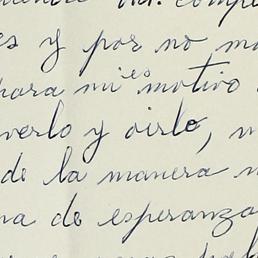 Vd. comp
es y por no m
para mi es motivo
verlo y oirle, m
de la manera
na de esperanza